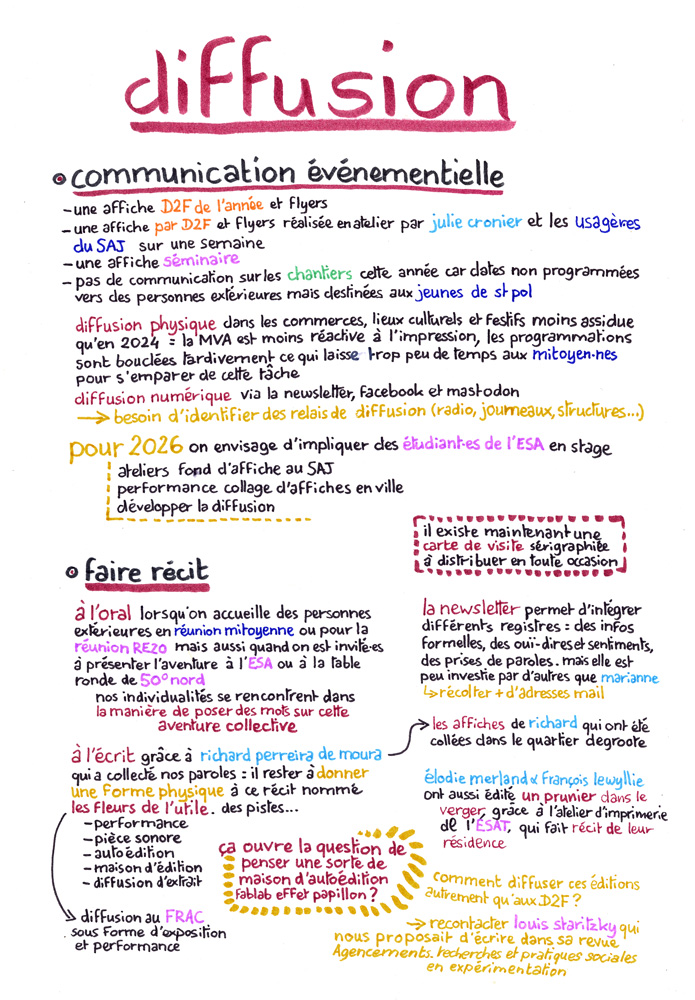 diffusion
communication événementielle
- une affiche D2F de l'année et flyers
- une affiche par D2F et flyers réalisée en atelier par julie cronier et les usagères
du SAJ sur une semaine
- une affiche séminaire
- pas de communication sur les chantiers cette année car dates non programmées
vers des personnes extérieures mais destinées aux jeunes de st pol
diffusion physique dans les commerces, lieux culturels et festifs moins assidue
qu'en 2024 = la MVA est moins réactive à l'impression, les programmations
sont bouclées tardivement ce qui laisse trop peu de temps aux mitoyen·nes
pour s'emparer de cette tâche
diffusion numérique via la newsletter, facebook et mastodon
→ besoin d'identifier des relais de diffusion (radio, journeaux, structures...)
pour 2026 on envisage d'impliquer des étudiant·es de l'ESA en stage
ateliers fond d'affiche au SAJ
performance collage d'affiches en ville
développer la diffusion
il existe maintenant une
carte de visite sérigraphiée
à distribuer en toute occasion
faire récit
à l'oral lorsqu'on accueille des personnes
extérieures en réunion mitoyenne ou pour la
réunion RE20 mais aussi quand on est invité·es
à présenter l'aventure à l'ESA ou à la table
ronde de 50° nord
nos individualités se rencontrent dans
la manière de poser des mots sur cette
aventure collective
à l'écrit grâce à richard perreira de moura
qui a collecté nos paroles : il rester à donner
une forme physique à ce récit nommé
les fleurs de l'utile. des pistes...
- performance
- pièce sonore
- autoédition
- maison d'édition
- diffusion d'extrait
diffusion au FRAC
sous forme d'exposition
et performance
la newsletter permet d'intégrer
différents registres = des infos
formelles, des ouï-dires et sentiments,
des prises de paroles. mais elle est
peu investie par d'autres que marianne
↳ récolter + d'adresses mail
→ les affiches de richard qui ont été
collées dans le quartier degroote
élodie merland & françois lewyllie
ont aussi édité un prunier dans le
verger, grâce à l'atelier d'imprimerie
de l'ESAT, qui fait récit de leur
résidence
ça ouvre la question de
penser une sorte de
maison d'autoédition
fablab effet papillon ?
comment diffuser ces éditions
autrement qu'aux D2F ?
→ recontacter louis staritzky qui
nous proposait d'écrire dans sa revue
Agencements. recherches et pratiques sociales
en expérimentation